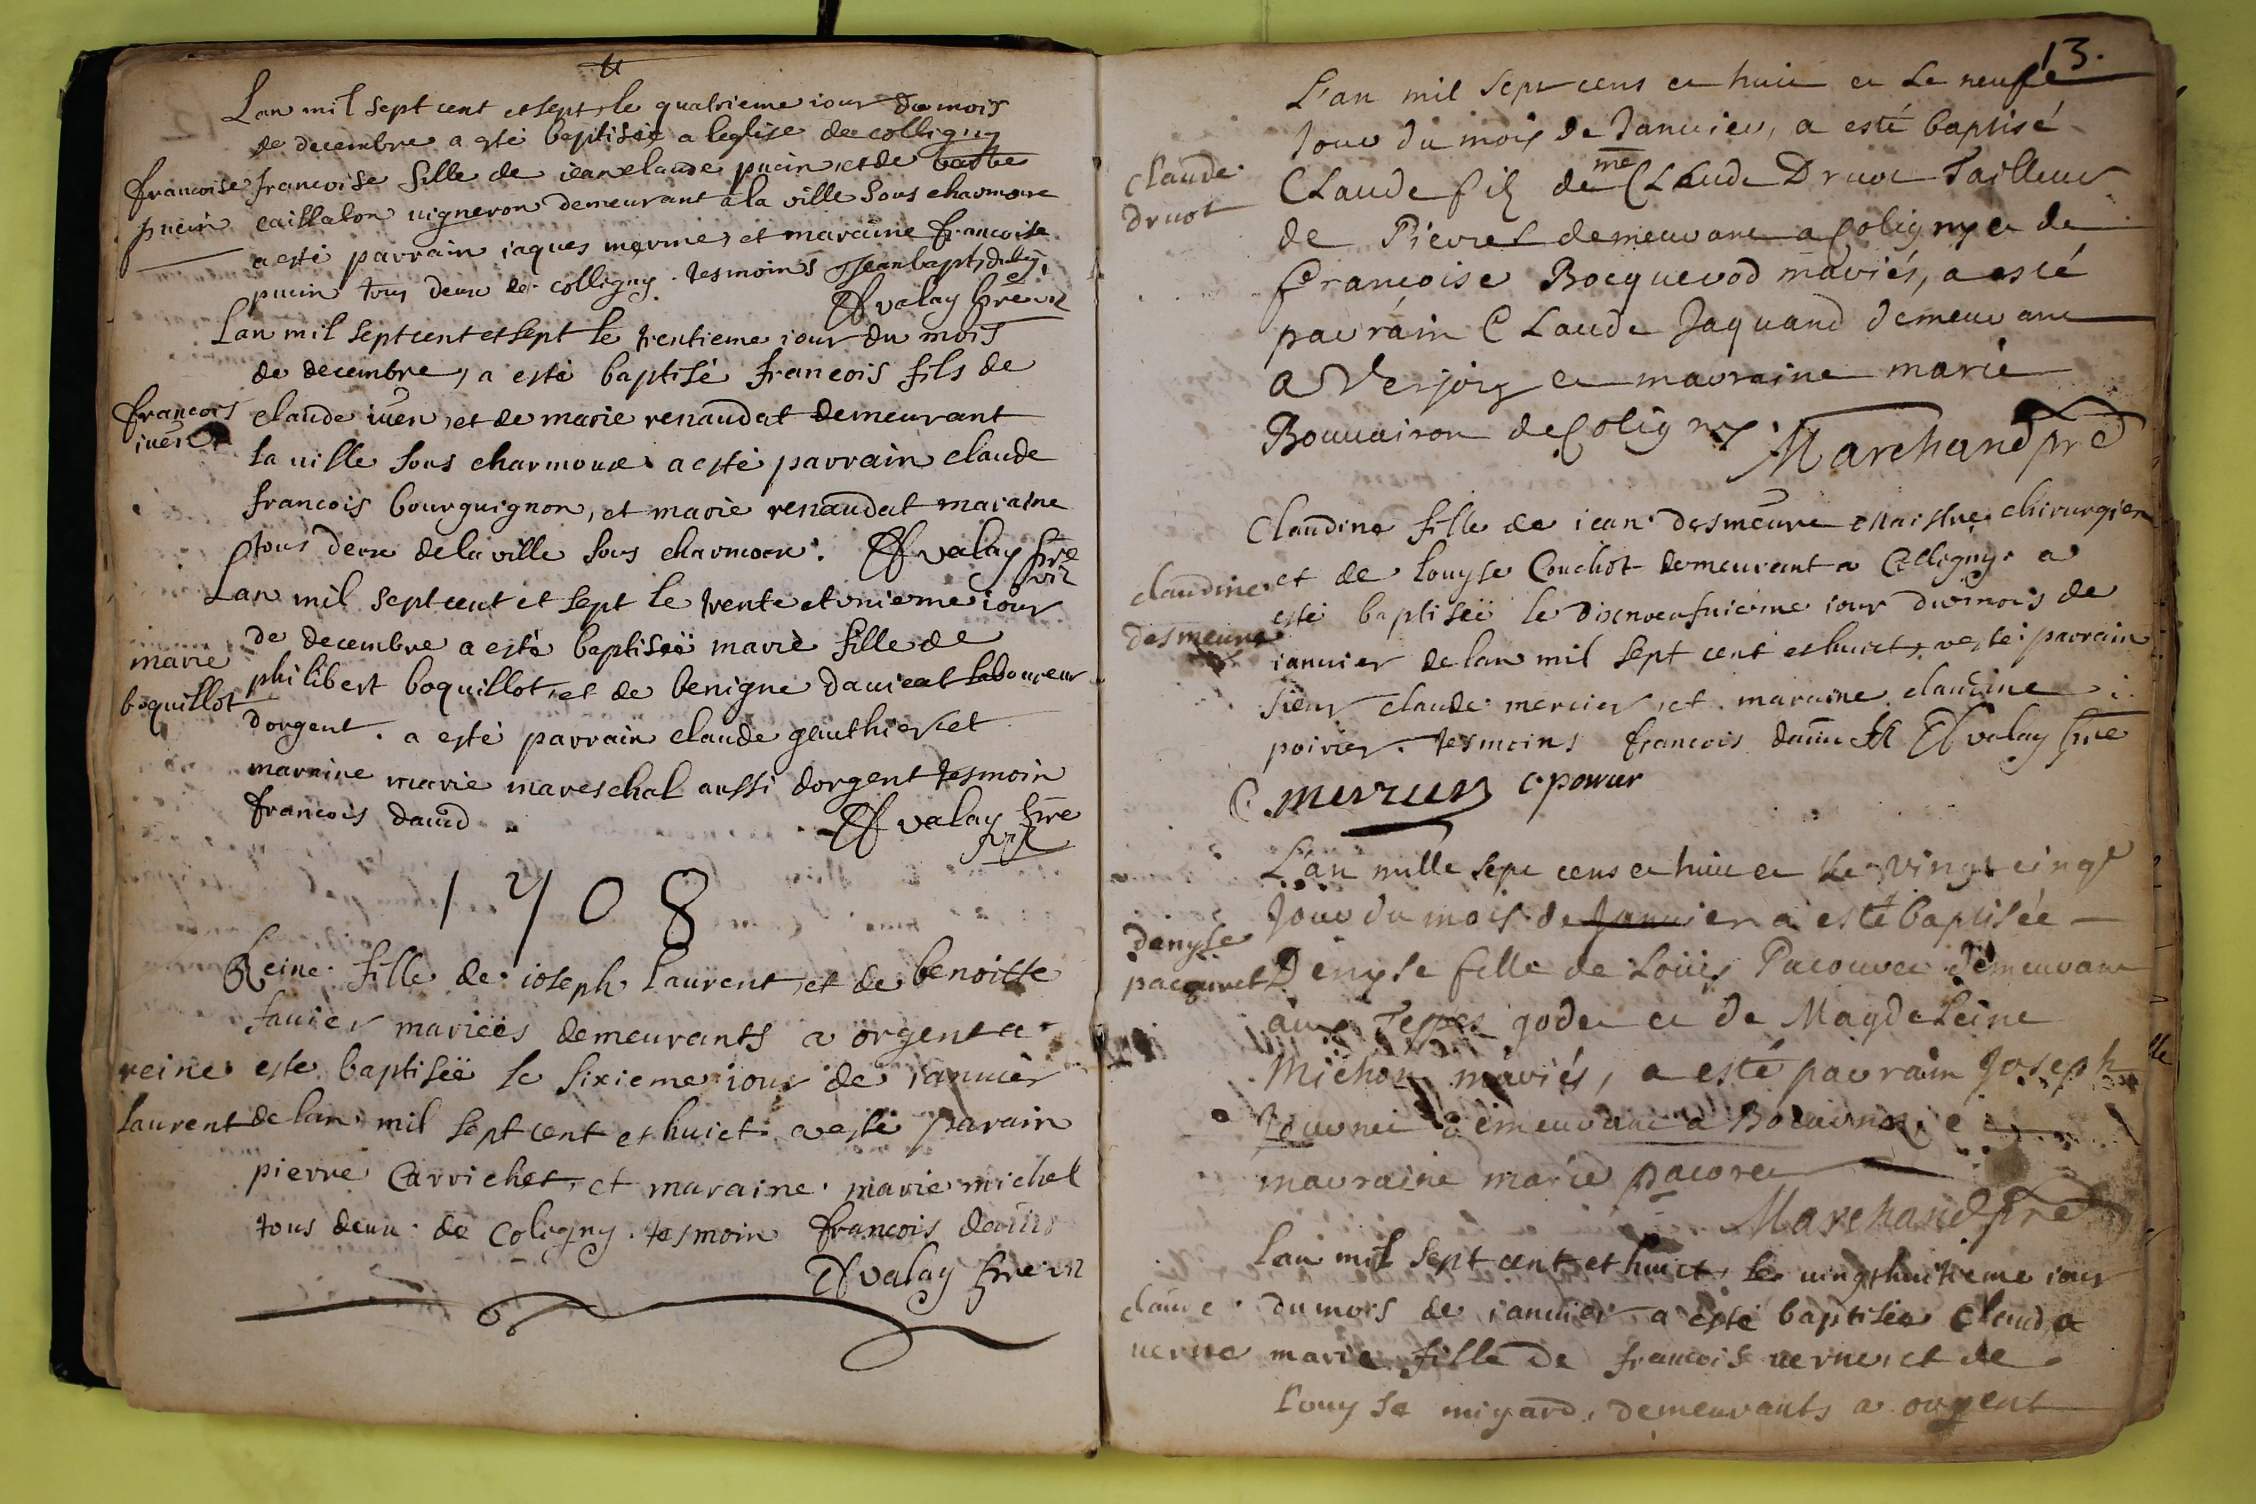 Lan mil sept cent et sept le quatrieme iour du mois
de decembre a esté baptisée a leglise de colligny
francoise francoise fille de iean claude pucin et de barbe
pucin caillaton uigneron demeurant a la ville sous charmoux
a esté parrain iaques et maraine francoise
pucin tous deux de colligny tesmoins Jean bapt
valay pre vic
Lan mil sept cent et sept le trentieme iour du mois
de decembre, a esté baptisé francois fils de
francois claude iuen, et de marie renaudat demeurant
iuen la uille sous charmoux a esté parrain claude
francois bourguignon, et marie renaudat maraine
tous deux de la ville sous charmoux. valay pre
vic
Lan mil sept cent et sept le trente et unieme iour
de decembre a esté baptiseë marie fille de
marie philibert boquillot, et de benigne laboureur
boquillot dorgent. a esté parrain claude gauthier et
maraine marie mareschal aussi dorgent tesmoin
francois dauid valay pre
vic
1708
Reine fille de ioseph laurent, et de benoitte
fauier marieés demeurants a orgent a
reine esté baptiseë le sixieme iour de ianuier
laurent de lan mil sept cent et huict a esté parain
pierre Carrichet, et maraine marie michel
tous deux de Coligny. tesmoin francois dauid
valay pre vic
13.
L'an mil sept cens et huit et le neufe
Jour du mois de Januier, a esté baptisé
claude Claude filz de me Claude Druot Tailleur
druot de Pierres demeurant a Coligny et de
francoise Bocquerod mariés, a esté
parrain Claude Jaquand demeurant
a Verjon et marraine marie
Bouuairon de Coligny. Marchand pre
Claudine fille de iean desmeure maistre chirurgien
claudine et de louyse Couchot demeurant a Colligny a
desmeure esté baptiseë le dixneufuieme iour du mois de
ianuier de lan mil sept cent et huict, a esté parrain
sieur claude mercier, et maraine claudine
poirier. tesmoins francois dauid valay pre
C. mercier c. poirier
L'an mille sept cens et huit et le vingt cinqe
Jour du mois de Januier a esté baptisée
denyse Denyse fille de Loüis Pacouret demeurant
pacouret aux Teppes godet et de Magdeleine
Michon mariés, a esté parrain Joseph
demeurant a
marraine marie pacoret
Marchand pre
lan mil sept cent et huict, le uingthuitieme iour
claude du mois de ianuier a esté baptisée Claude
uerne marie fille de francois uerne, et de
louyse migard, demeurants a orgent